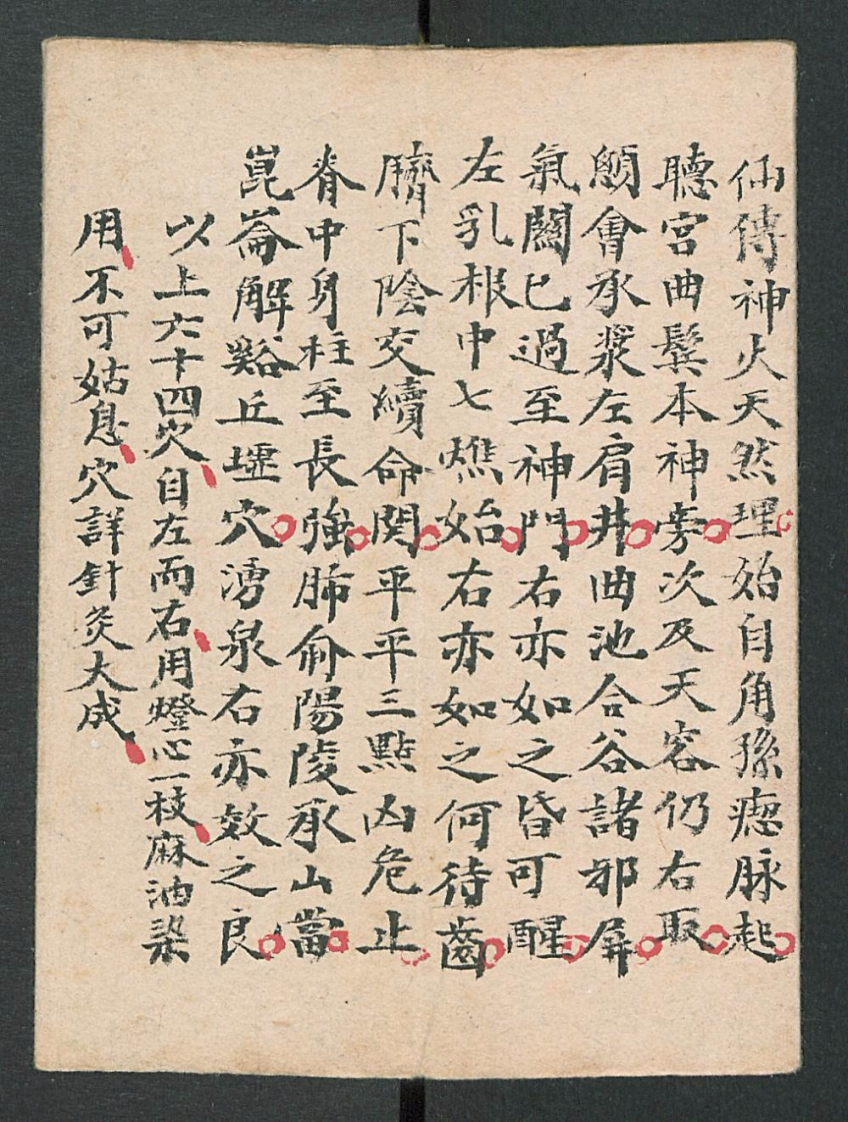 仙傳神火天然理始自角孫瘛脉起
聽宮曲鬓本神旁次及天容仍右取
顖會承漿左肩井曲池合谷諸邪屏
氣關已過至神門右亦如之昏可醒
左乳根中七燋始右亦如之何待齒
臍下陰交續命関平平三點凶危止
脊中身柱至長強肺俞陽陵承山當
崑崙解谿丘墟穴湧泉右亦效之良
以上六十四穴自左而右用燈心一枝麻油染
用不可姑息穴詳針灸大成